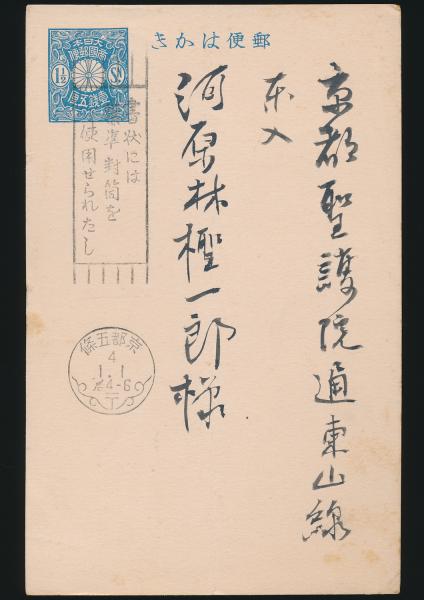 郵便はかき
大日本
帝國郵便
1½ Sn
壹錢五厘
書状には
標準封筒を
使用せられたし
京都五條
4
1.1
后4-6
京都聖護院通東山線
東入
河原林樫一郎様